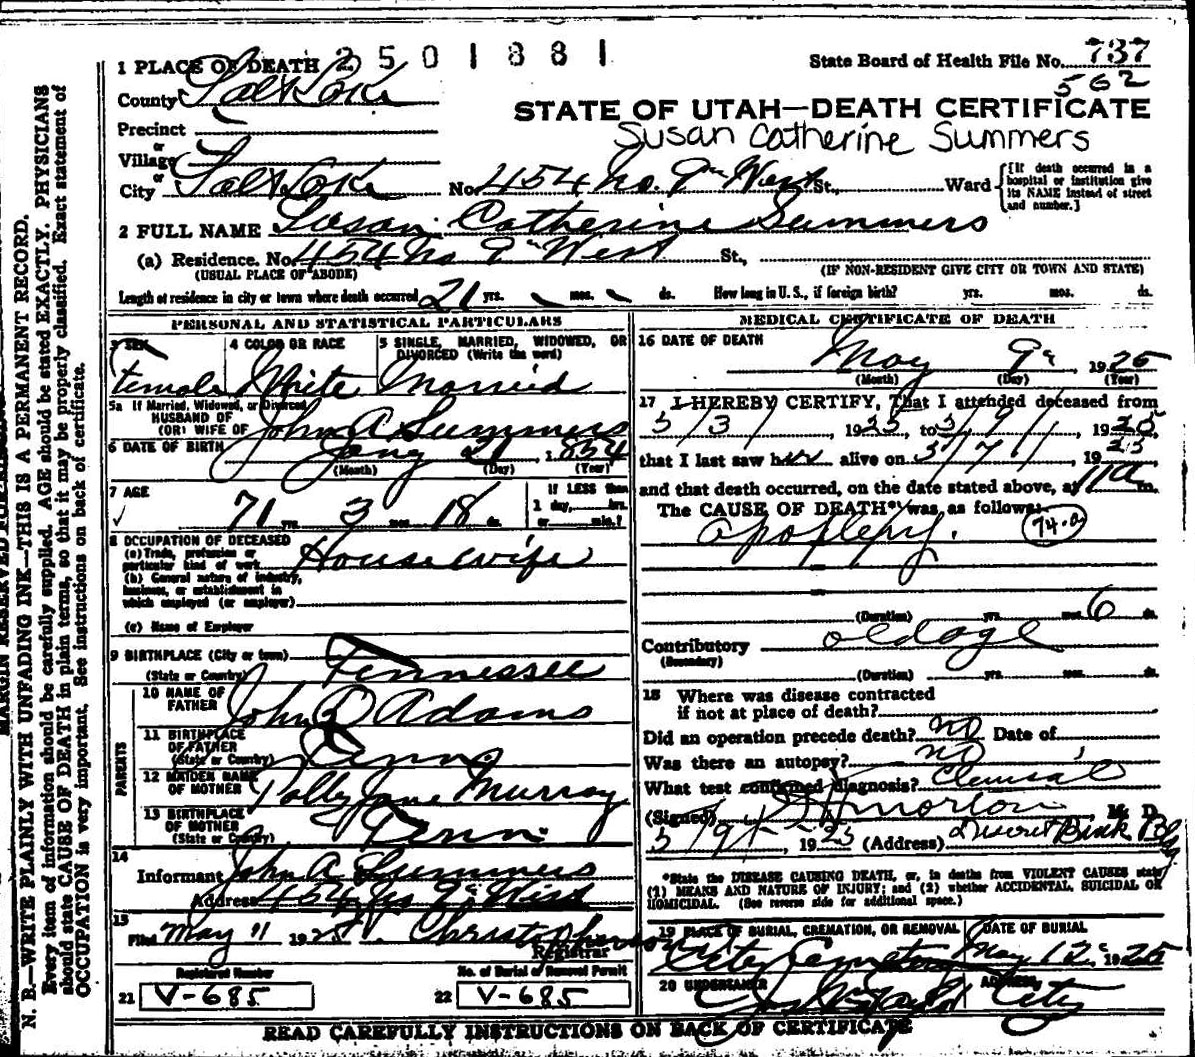 2501881
State Board of Health File No. 737
562
1 PLACE OF DEATH
County Salt Lake
STATE OF UTAH—DEATH CERTIFICATE
Susan Catherine Summers
Precinct
or
Village
or
City Salt Lake No. 454 No. 9th West St., Ward {[If death occurred in a hospital or institution give its NAME instead of street and number.]
2 FULL NAME Susan Catherine Summers
(a) Residence. No. 454 No 9th West St.,
(USUAL PLACE OF ABODE) (IF NON-RESIDENT GIVE CITY OR TOWN AND STATE)
Length of residence in city or town where death occurred 21 yrs. mos. ds. How long in U. S., if foreign birth? yrs. mos. ds.
PERSONAL AND STATISTICAL PARTICULARS
3 SEX 4 COLOR OR RACE 5 SINGLE, MARRIED, WIDOWED, OR DIVORCED (Write the word)
Female White Married
5a If Married, Widowed, or Divorced
HUSBAND OF
(OR) WIFE OF John A Summers
6 DATE OF BIRTH Jany 21, 1854
(Month) (Day) (Year)
7 AGE 71 yrs. 3 mos. 18 ds. If LESS than 1 day, hrs. or min.?
8 OCCUPATION OF DECEASED
(a) Trade, profession or particular kind of work Housewife
(b) General nature of industry, business, or establishment in which employed (or employer)
(c) Name of Employer
9 BIRTHPLACE (City or town)
(State or Country) Tennessee
PARENTS
10 NAME OF FATHER John Q Adams
11 BIRTHPLACE OF FATHER (State or Country) Tenn
12 MAIDEN NAME OF MOTHER Polly Jane Murray
13 BIRTHPLACE OF MOTHER (State or Country) Tenn
14
Informant John A Summers
Address 454 No 9th West
15
Filed May 11 1925 Christopherson
Registrar
Registered Number No. of Burial or Removal Permit
21 V-685 22 V-685
MEDICAL CERTIFICATE OF DEATH
16 DATE OF DEATH
May 9th, 1925
(Month) (Day) (Year)
17 I HEREBY CERTIFY, That I attended deceased from
5/3/, 1925, to 5/9/, 1925,
that I last saw her alive on 5/7/, 1925
and that death occurred, on the date stated above, at 11 a m.
The CAUSE OF DEATH* was as follows:
apoplexy. 74-a
(Duration) yrs. mos. 6 ds.
Contributory old age
(Secondary)
(Duration) yrs. mos. ds.
18 Where was disease contracted
if not at place of death?
Did an operation precede death? no Date of
Was there an autopsy? no
What test confirmed diagnosis? Clinical
(Signed) Morton M. D.
5/9/, 1925 (Address) Deseret Bank Bldg.
*State the DISEASE CAUSING DEATH, or, in deaths from VIOLENT CAUSES state
(1) MEANS AND NATURE OF INJURY; and (2) whether ACCIDENTAL, SUICIDAL OR
HOMICIDAL. (See reverse side for additional space.)
19 PLACE OF BURIAL, CREMATION, OR REMOVAL DATE OF BURIAL
City Cemetery May 12, 1925
20 UNDERTAKER ADDRESS
City
READ CAREFULLY INSTRUCTIONS ON BACK OF CERTIFICATE
MARGIN RESERVED FOR
N. B.—WRITE PLAINLY WITH UNFADING INK—THIS IS A PERMANENT RECORD.
Every item of information should be carefully supplied. AGE should be stated EXACTLY. PHYSICIANS
should state CAUSE OF DEATH in plain terms, so that it may be properly classified. Exact statement of
OCCUPATION is very important. See instructions on back of certificate.